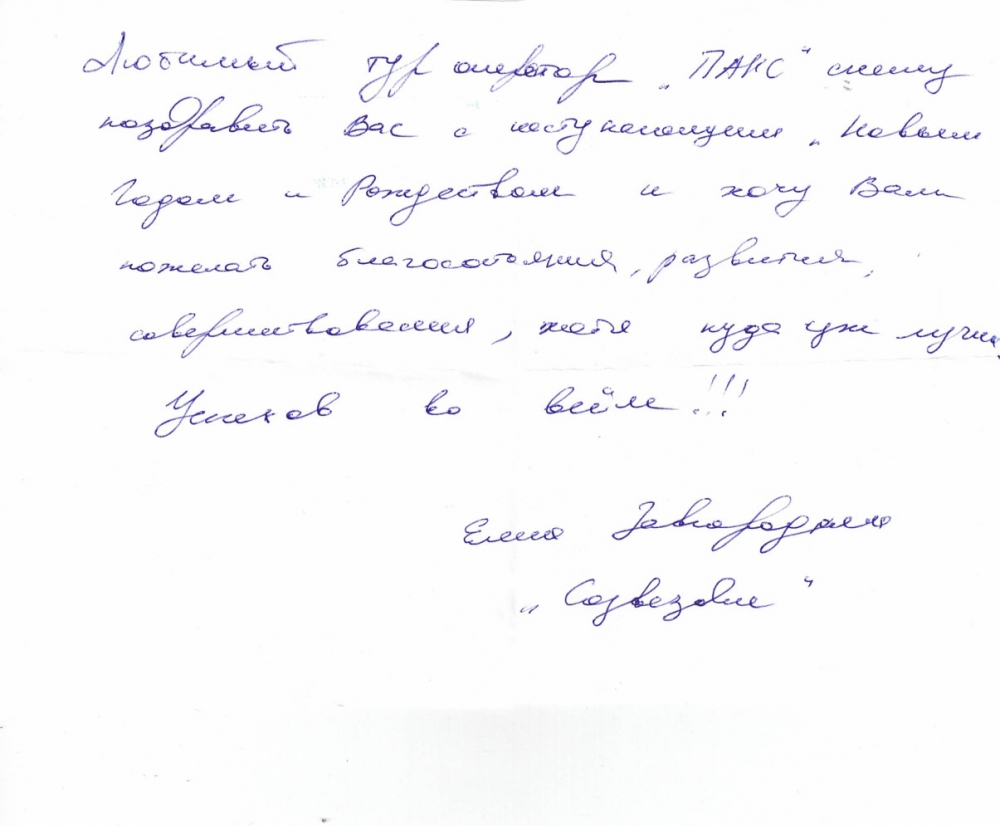 Любимый тур оператор „ПАКС“ спешу
поздравить Вас с наступающим „Новым
Годом и Рождеством и хочу Вам
пожелать благосостояния, развития,
совершенствования, хотя куда уж лучше.
Успехов во всём!!!
Елена
„Созвездие“